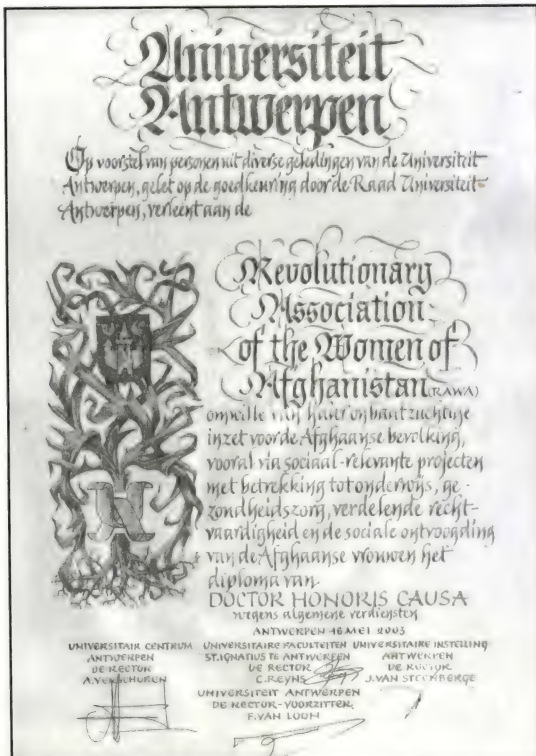 Universiteit
Antwerpen
Op voorstel van personen uit diverse geledingen van de Universiteit
Antwerpen, gelet op de goedkeuring door de Raad Universiteit
Antwerpen, verleent aan de
Revolutionary
Association
of the Women of
Afghanistan (RAWA)
omwille van haar onbaatzuchtige
inzet voor de Afghaanse bevolking,
vooral via sociaal-relevante projecten
met betrekking tot onderwijs, ge-
zondheidszorg, verdelende recht-
vaardigheid en de sociale ontvoogding
van de Afghaanse vrouwen het
diploma van
DOCTOR HONORIS CAUSA
wegens algemene verdiensten
ANTWERPEN 16 MEI 2003
UNIVERSITAIR CENTRUM
ANTWERPEN
DE RECTOR
A. VERSCHUREN
UNIVERSITAIRE FACULTEITEN
ST. IGNATIUS TE ANTWERPEN
DE RECTOR
C. REYNS
UNIVERSITAIRE INSTELLING
ANTWERPEN
DE RECTOR
J. VAN STEENBERGE
UNIVERSITEIT ANTWERPEN
DE RECTOR-VOORZITTER,
F. VAN LOON